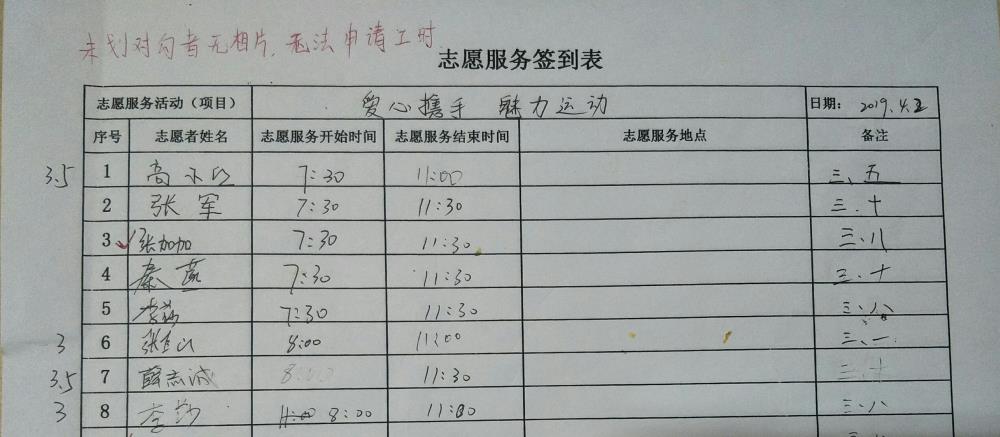 未划对勾者无相片,无法申请工时
志愿服务签到表
志愿服务活动（项目） 爱心携手 魅力运动 日期： 2019.4.
序号 志愿者姓名 志愿服务开始时间 志愿服务结束时间 志愿服务地点 备注
3.5 1 高 7:30 11:00 三、五
2 张军 7:30 11:30 三.十
3 ✓张加加 7:30 11:30 三.八
4 秦 7:30 11:30 三.十
5 7:30 11:30 三.八
3 6 张 8:00 11:00 三、一
3.5 7 薛志诚 8:00 11:30 三.十
3 8 李 8:00 11:00 三.八